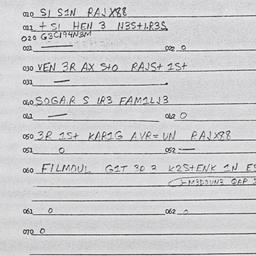 010 SI S1N RAJX88
011 + SI HEN 3 N3S+1.R3S
020 G3C194N3M
021 — 022 0
030 VEN 3R AX S+0 RAJS+ 1S+
031 —
040 SOGAR S 1R3 FAM1LJ3
041 — 042 0
050 3R 1S+ KAR1G AVR= UN RAJX88
051 0 052 —
060 F1LMOUL G1T 30 3 K2S+ENK 1N
061 0 062 0
070 0